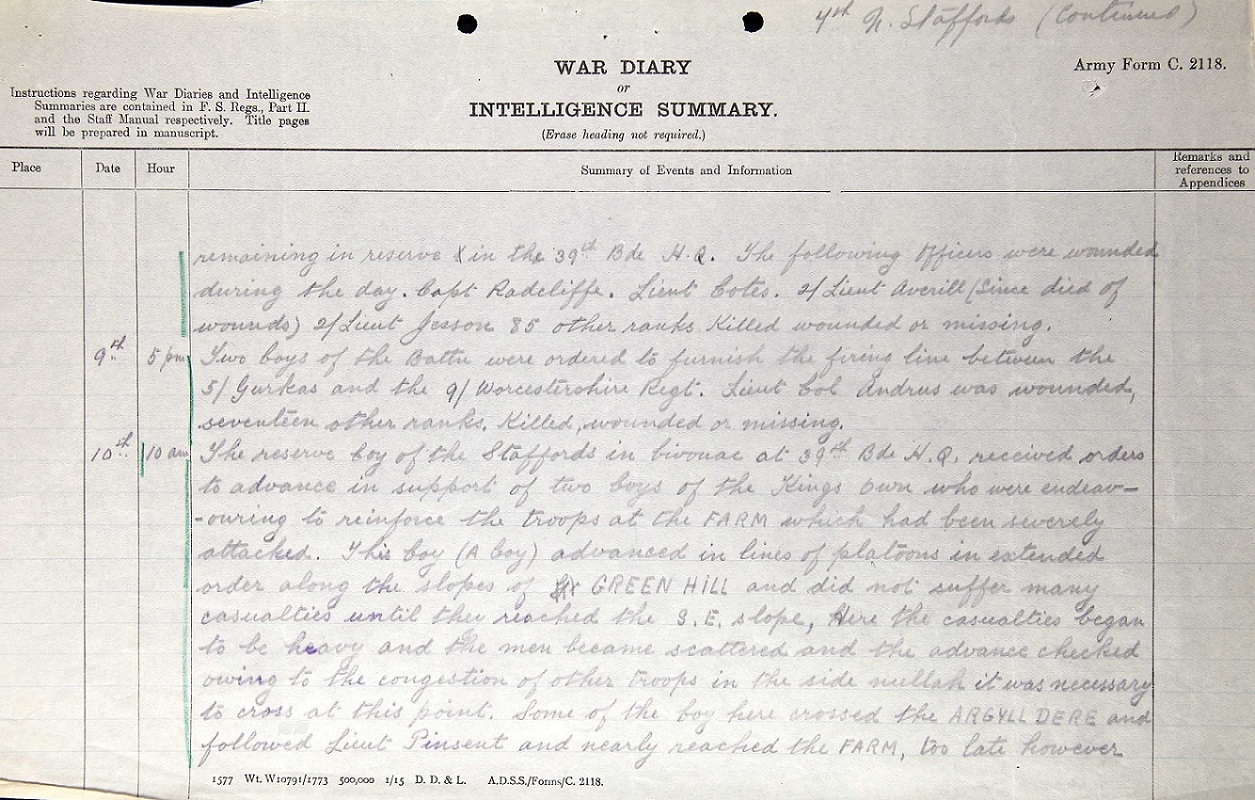 4th N. Staffords (Continued)
WAR DIARY
or
INTELLIGENCE SUMMARY.
(Erase heading not required.)
Army Form C. 2118.
Instructions regarding War Diaries and Intelligence
Summaries are contained in F. S. Regs., Part II.
and the Staff Manual respectively. Title pages
will be prepared in manuscript.
Place Date Hour Summary of Events and Information Remarks and
references to
Appendices
remaining in reserve & in the 39th Bde H.Q. The following Officers were wounded
during the day. Capt Radcliffe. Lieut Cotes. 2/Lieut Averill (Since died of
wounds) 2/Lieut Jesson 85 other ranks Killed wounded or missing.
9th 5 pm Two Coys of the Battn were ordered to furnish the firing line between the
5/ Gurkas and the 9/ Worcestershire Regt. Lieut Col Andrus was wounded,
seventeen other ranks. Killed, wounded or missing.
10th 10 am The reserve Coy of the Staffords in bivouac at 39th Bde H.Q. received orders
to advance in support of two Coys of the Kings Own who were endeav-
-ouring to reinforce the troops at the FARM which had been severely
attacked. This Coy (A Coy) advanced in lines of platoons in extended
order along the slopes of GREEN HILL and did not suffer many
casualties until they reached the S.E. slope, Here the casualties began
to be heavy and the men became scattered and the advance checked
owing to the congestion of other troops in the side nullah it was necessary
to cross at this point. Some of the Coy here crossed the ARGYLL DERE and
followed Lieut Pinsent and nearly reached the FARM, too late however
1577 Wt. W10791/1773 500,000 1/15 D. D. & L. A.D.S.S./Forms/C. 2118.